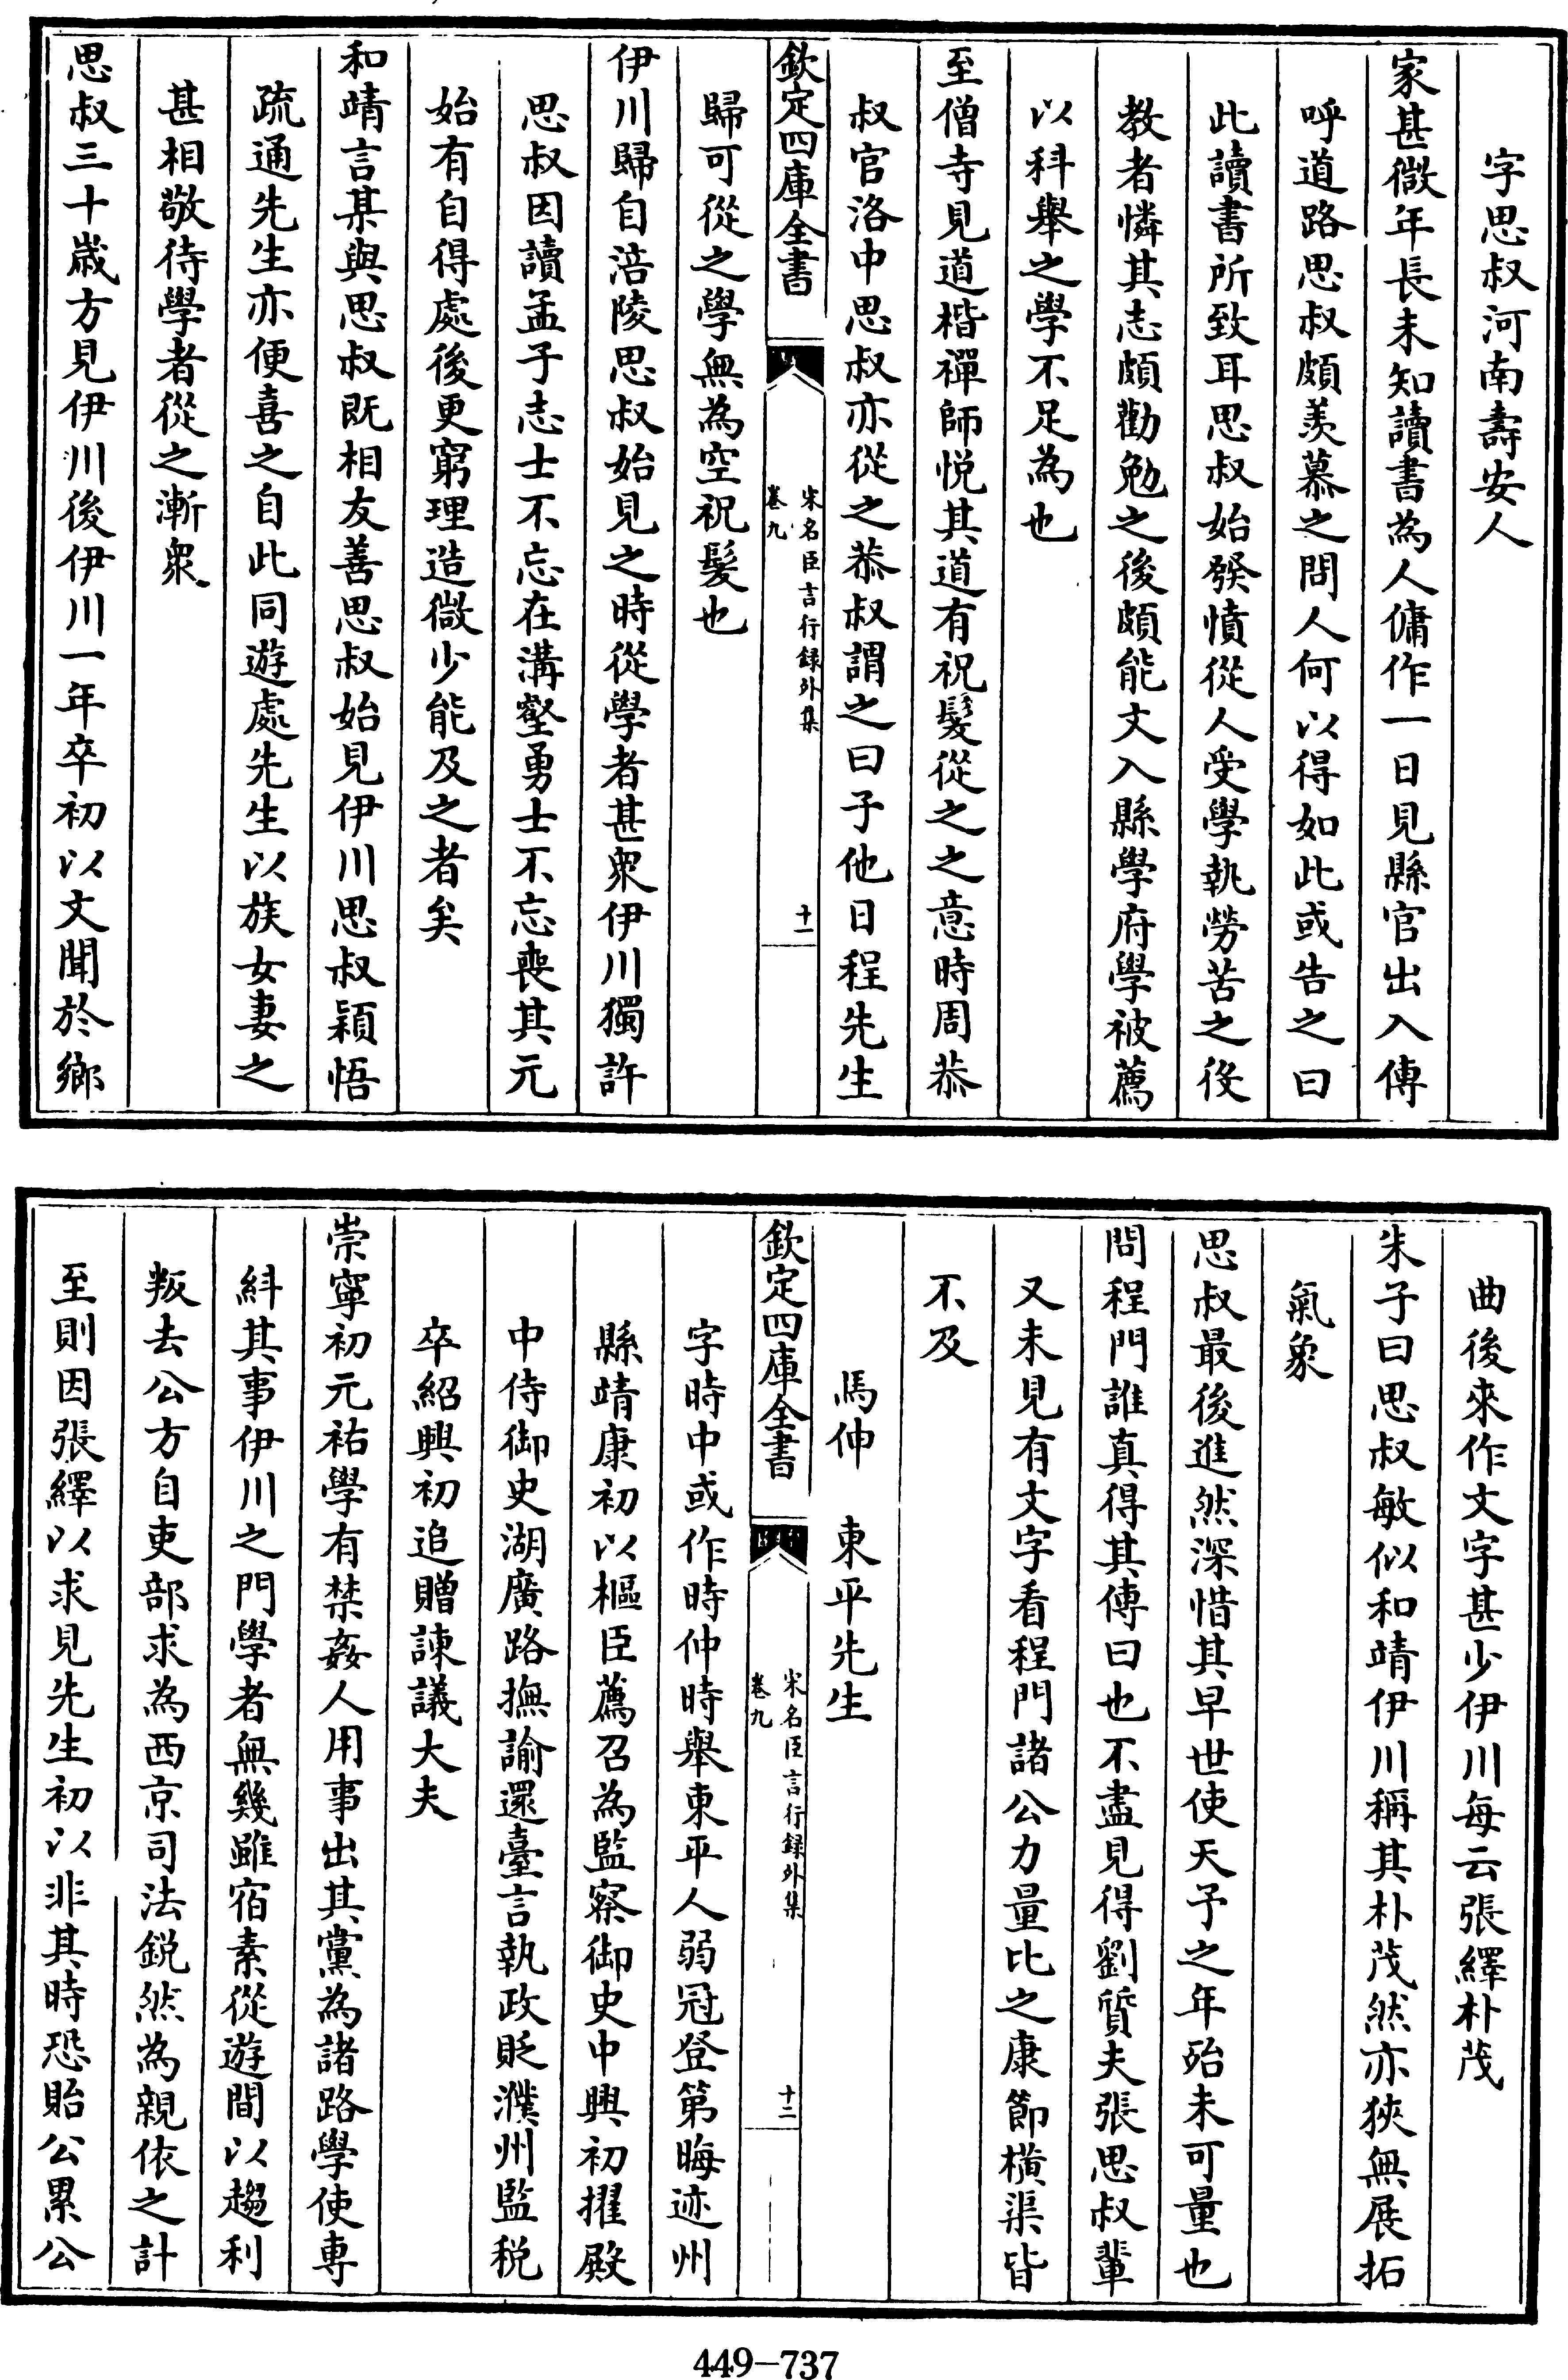 字思叔河南壽安人
家甚微年長未知讀書為人傭作一日見縣官出入傳
呼道路思叔頗羨慕之問人何以得如此或告之曰
此讀書所致耳思叔始發憤從人受學執勞苦之役
教者憐其志頗勸勉之後頗能文入縣學府學被薦
以科舉之學不足為也
至僧寺見道楷禪師悅其道有祝髮從之之意時周恭
叔官洛中思叔亦從之恭叔謂之曰子他日程先生
欽定四庫全書
宋名臣言行録外集
卷九
十一
歸可從之學無為空祝髮也
伊川歸自涪陵思叔始見之時從學者甚衆伊川獨許
思叔因讀孟子志士不忘在溝壑勇士不忘喪其元
始有自得處後更窮理造微少能及之者矣
和靖言某與思叔既相友善思叔始見伊川思叔穎悟
疏通先生亦便喜之自此同遊處先生以族女妻之
甚相敬待學者從之漸衆
思叔三十歲方見伊川後伊川一年卒初以文聞於鄉
曲後來作文字甚少伊川每云張繹朴茂
朱子曰思叔敏似和靖伊川稱其朴茂然亦狹無展拓
氣象
思叔最後進然深惜其早世使天予之年殆未可量也
問程門誰真得其傳曰也不盡見得劉質夫張思叔輩
又未見有文字看程門諸公力量比之康節橫渠皆
不及
馬伸　東平先生
欽定四庫全書
宋名臣言行録外集
卷九
十二
字時中或作時仲時舉東平人弱冠登第晦迹州
縣靖康初以樞臣薦召為監察御史中興初擢殿
中侍御史湖廣路撫諭還臺言執政貶濮州監稅
卒紹興初追贈諫議大夫
崇寧初元祐學有禁姦人用事出其黨為諸路學使專
糾其事伊川之門學者無幾雖宿素從遊間以趨利
叛去公方自吏部求為西京司法鋭然為親依之計
至則因張繹以求見先生初以非其時恐貽公累公
449-737